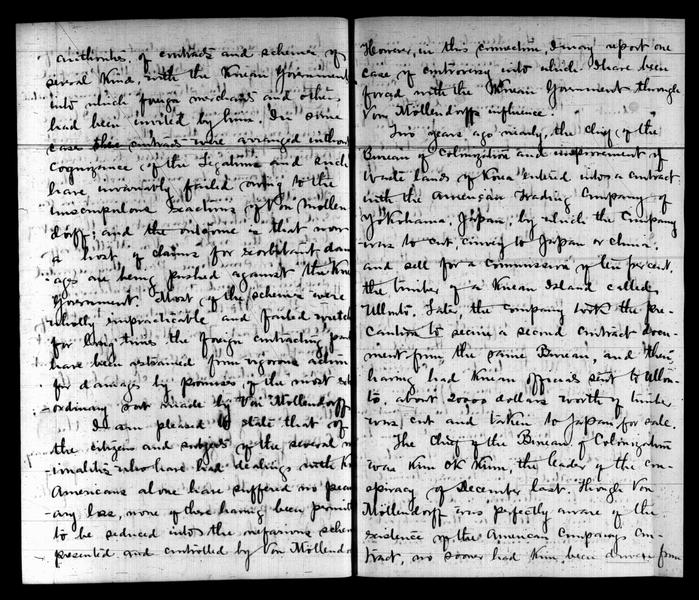 authorities, of contracts and schemes of
several kinds, with the Korean Government
into which foreign merchants and others
had been invited by him. In some
case these contracts were arranged without
cognizance of the Legations and such
have invariably failed owing to the
unscrupulous exactions of Von Mollen
dorff; and the outcome is that now
a host of claims for exorbitant dam
ages are being pushed against the Kore
Government. Most of the schemes were
wholly impracticable and failed
for long time the foreign contracting
have been restrained from vigorous action
for damages by promises of the most ex
ordinary sort made by Von Mollendorff
I am pleased to state that of
the citizens and subjects of the several na
tionalities who have had dealings with Ko
Americans alone have suffered no pecu
ary loss, none of these having been
to be seduced into the nefarious schem
presented and controlled by Von Mollendo
However, in this connection, I may report one
case of controversy into which I have been
forced with the Korean Government through
Von Mollendorff's influence.
Two years ago nearly, the Chief of the
Bureau of Colonization and improvement of
waste lands of Korea entered into a contract
with the American Trading Company of
Yokohama, Japan, by which the Company
was to cut, convey to Japan or China,
and sell for a Commission of ten per cent.
the timber of a Korean Island called
Ullonto. Later, the company took the pre-
caution to secure a second contract docu-
ment from the same Bureau, and then
having had Korean officials sent to Ullon-
to, about 20000 dollars worth of timber
was cut and taken to Japan for sale.
The Chief of the Bureau of Colonization
was Kim Ok Kiun, the leader of the con-
spiracy of December last. Though Von
Mollendorff was perfectly aware of the
existence of the American Company's con-
tract, no sooner had Kim been driven from